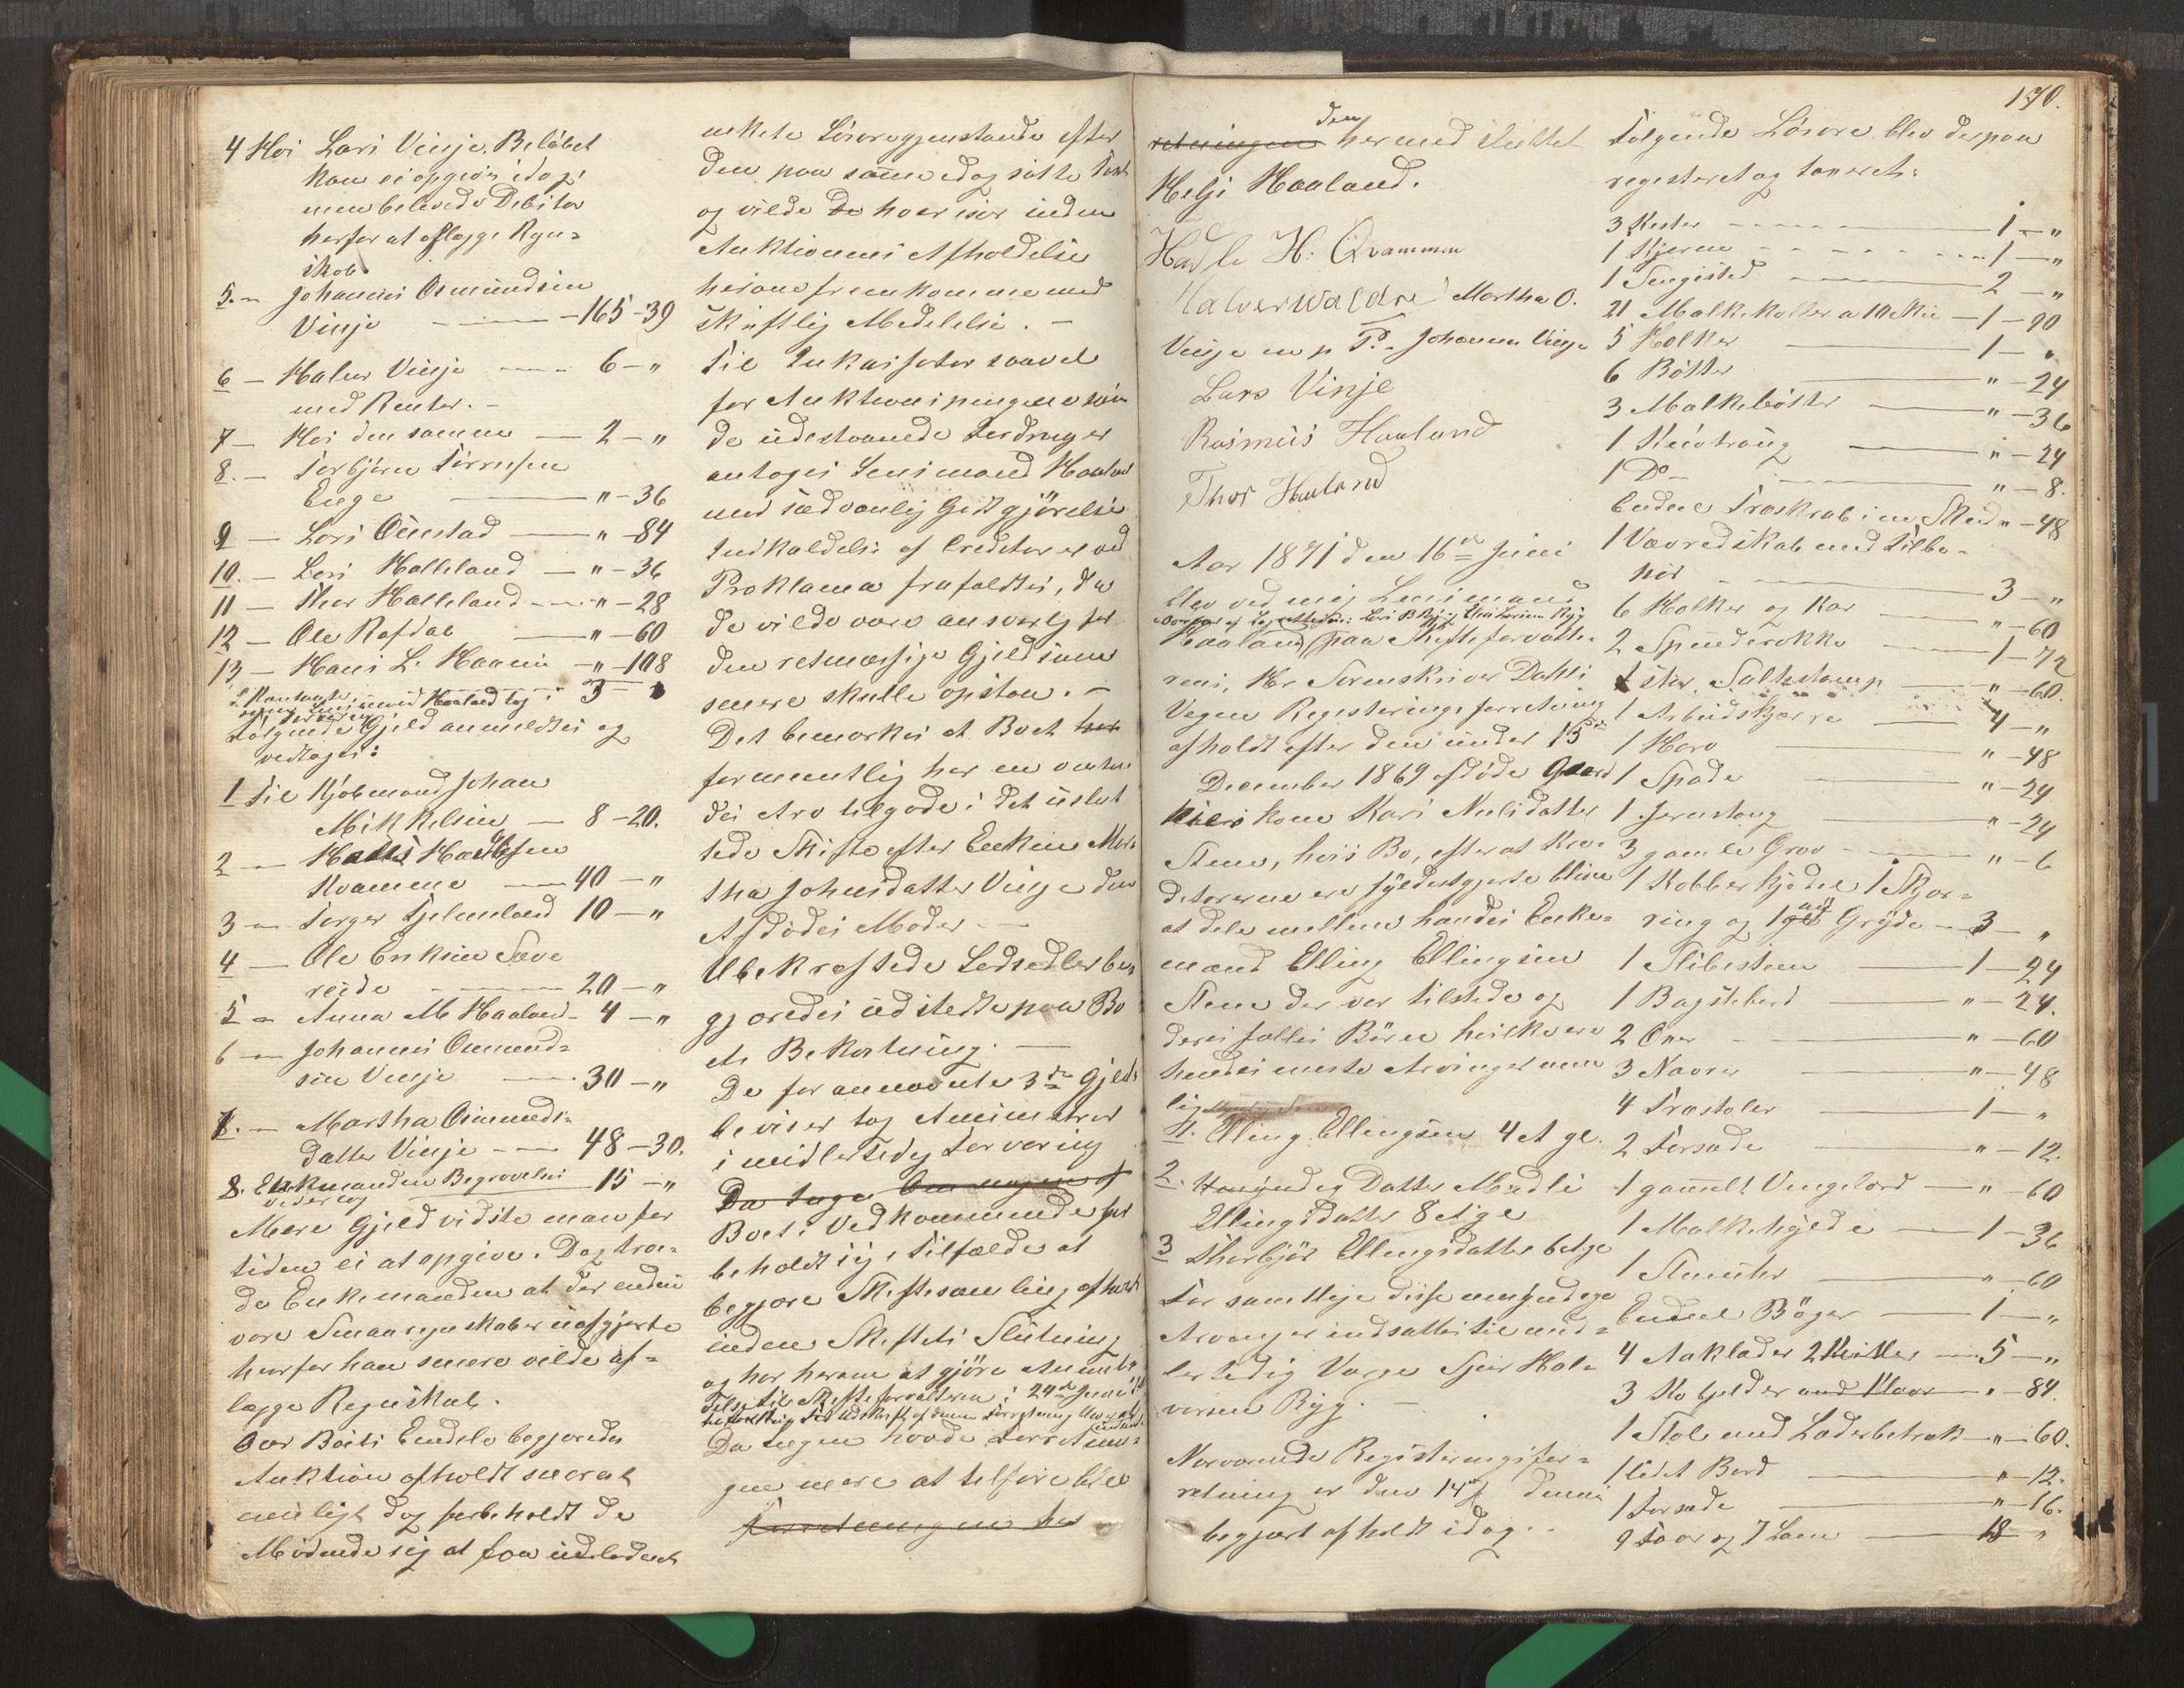 4 Hos Lars Vinje. Beløbet
kan ei opgives idag,
men belovede Debitor
herfor at aflægge Regn-
skab.
5. — Johannes Osmundsen
Vinje — 165-39
6 — Halvor Vinje — 6 — "
med Renter. —
7 — Hos den samme — 2 — "
8. — Torbjørn Tørresen
Enge — " — 36
9 — Lars Ølnestad — " — 84
10. — Lars Halleland — " — 36
11 — Thor Halleland — " — 28
12 — Ole Rafdal — " — 60
13 — Hans L. Haaeim — " — 108
Kontante, Haaland tog i 3
Forvaring
Følgende Gjeld anmeldtes og
vedtoges:
1 Til Kjøbmand Johan
Mikkelsen — 8-20.
2 —
Kvamme — 40 — "
3 — Torger Tjelmeland 10 — "
4 — Ole Eriksen Sæve
reide — 20 — "
5 — Anna M Haaland — 4 — "
6 — Johannes Osmund-
sen Vinje — 30 — "
7. — Martha Osmunds-
datter Vinje — 48-30.
8. Enkemanden Begravelses 15 — "
vederlag
Mere Gjeld vidste man for
tiden ei at opgive. Dog tro-
de Enkemanden at der endnu
vare Smaaregnskaber uafgjorte
hvorfor han senere vilde af-
lægge Regnskab.
Over Boets Eiendele begjæredes
Auktion afholdt snarest
muligt dog forbeholdt de
Mødende sig at faa udeladt
enkelte Løsøregjenstande efter
den paa samme idag satte Taxt
og vilde de hver især inden
Auktionens Afholdelse
herom fremkomme med
skriftlig Meddelelse. —
Til Inkassator saavel
for Auktionspengene som
de udestaaende Fordringer
antoges Lensmand Haaland
mod sædvanlig Godtgjørelse
Indkaldelse af Creditorer ved
Proklama frafaldtes, da
de vilde være ansvarlig for
den retmæssige Gjeld som
senere skulle opstaa. —
Det bemærkes at Boet har
formentlig har en vente
des Arv tilgode i det uslut
tede Skifte efter Enken Mar-
tha Johnsdatter Vinje den
Afdødes Moder. —
Ubekræftede Lodsedler be-
gjæredes udstedte paa Bo
ets Bekostning. —
De forannævnte 3de Gjelds
beviser tog
i midlertidig Forvaring
Da Ingen
Boets Vedkommende for
beholdt sig i Tilfælde at
begjære Skiftesamling afholdt
inden Skiftets Slutning
og har herom at gjøre Anmel-
delse til Skifteforvalteren i 24de Juni
Udskrift af denne Forretning
Da Ingen havde Forretnin-
gen mere at tilføre blev
forretningen her
retningen den hermed sluttet
Helje Haaland.
Hadle H. Qvammen
Halvor Waldre Martha O.
Vinje m p P. Johannes Vinje
Lars Vinje
Rasmus Haaland
Thor Haaland
Aar 1871 den 16de Juni
blev ved mig Lensmand
Overvær af Lagrettesm: Lars B Ryg Larsen Ryg
Haaland paa Skifteforvalte-
rens, Hr Sorenskriver Dahls
Vegne Registeringsforretning
afholdt efter den under 15de
December 1869 afdøde Gaard
Kari Nielsdatter
Steene, hvis Bo, efter at Kre-
ditorerne ere fyldestgjorte bliver
at dele mellem hendes Enke-
mand Elling Ellingsen
Steene der var tilstede og
deres fælles Børn hvilke ere
hendes eneste Arvinger nem
lig
1. Elling Ellingsen 4 A gl.
2. Umyndig Datter Madli
Ellingsdatter 8 A ge
3 Thorbjør Ellingsdatter 6 A ge
For samtlige disse umyndige
Arvinger indsattes til mid-
lertidig Værge Sjur Hal-
vorsen Ryg. —
Nærværende Registeringsfor-
retning er den 14de dennes
begjært afholdt idag. —
170.
Følgende Løsøre blev derpaa
registeret og taxeret:
3 Kister — 1 — "
1 Kjerne — 1 — "
1 Sengested — 2 — "
21 Malkekoller a 10 Skil — 1-90
5 Holker — 1 — "
6 Bøtter — " — 24
3 Malkebøtter — " — 36
1 Knotroug — " — 24
1 Do — " — 8.
Endeel Træskrab i en Skud " — 48
1 Vævredskab med Tilbe-
hør — 3 — "
6 Holker og Kar — " — 60
2 Spinderokke — 1-72
1 stor Saltstamp — " — 60.
1 Arbeidskjærre — 4 — "
1 Harv — " — 48
1 Spade — " — 24
1 Jernstang — " — 24
3 gamle Grev — " — 6
1 Kobberkjedel 1 Skjær-
ring og 1 Gryde — 3 — "
1 Slibesteen — 1-24
1 Bagstebord — " — 24.
2 Øxer — " — 60
3 Navrer — " — 48
4 Træstoler — 1 — "
2 Forsæde — " — 12.
1 gammelt Vengelord — " — 60
1 Malkehylde — 1-36
1 Stueuhr — " — 60
Endeel Bøger — 1 — "
4 Aaklæder 2 Kister — 5 — "
3 Ko bjelder — " — 84
1 Stol med Læderbetræk — " — 60.
1 lidet Bord — " — 12.
1 Forsæde — " — 16.
9 Faar og 7 Lam — 18 "